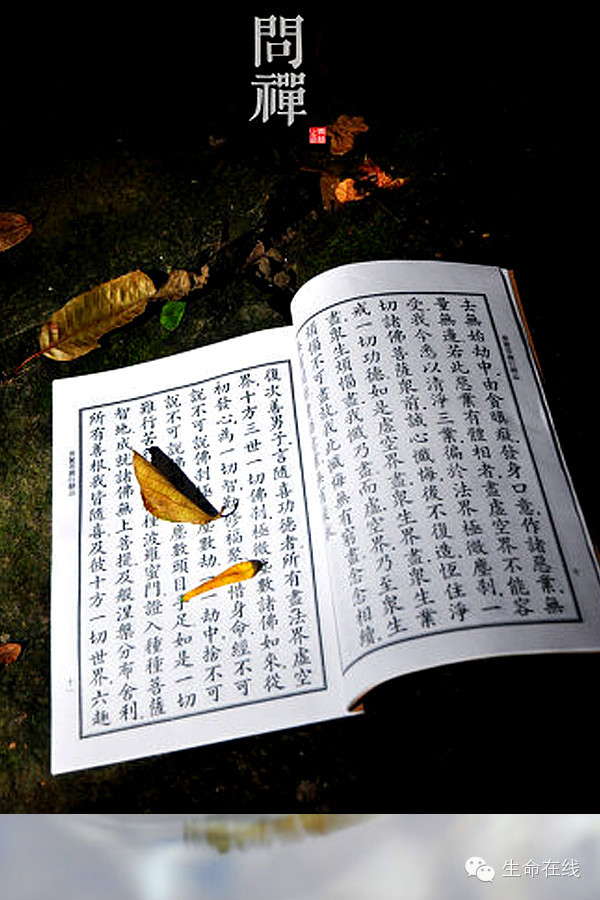 問禪
去無始劫中由貪瞋癡發身口意作諸惡業無
量無邊若此惡業有體相者盡虛空界不能容
受我今悉以清淨三業徧於法界極微塵剎一
切諸佛菩薩眾前誠心懺悔後不復造恆住淨
戒一切功德如是虛空界盡眾生界盡眾生業
盡眾生煩惱盡我懺乃盡而虛空界乃至眾生
煩惱不可盡故我此懺悔無有窮盡念念相續
復次善男子言隨喜功德者所有盡法界虛空
界十方三世一切佛剎極微塵數諸佛如來從
初發心為一切智勤修福聚不惜身命經不可
說不可說佛剎極微塵數劫劫中捨不可
說不可說塵數頭目手足如是一切
難行苦種波羅蜜門證入種種菩薩
智地成就諸佛無上菩提及般涅槃分布舍利
所有善根我皆隨喜及彼十方一切世界六趣
十一
生命在线